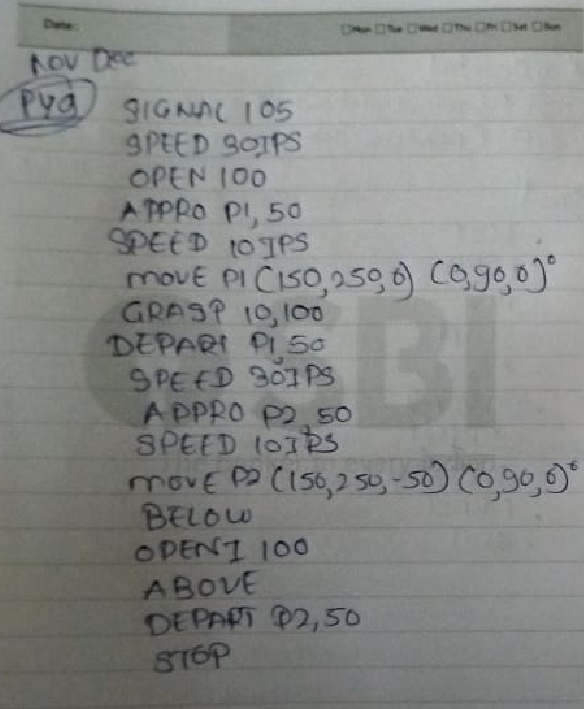 Date:
☐Mon ☐Tue ☐Wed ☐Thu ☐Fri ☐Sat ☐Sun
NOV Dec
SIGNAL 105
SPEED 30IPS
OPEN 100
APPRO P1, 50
SPEED 10IPS
MOVE P1 (150,250,0) (0,90,0)°
GRASP 10,100
DEPART P1,50
SPEED 30IPS
APPRO P2,50
SPEED 10IPS
MOVE P2 (150,250,-50) (0,90,0)°
BELOW
OPENI 100
ABOVE
DEPART P2,50
STOP
SBI